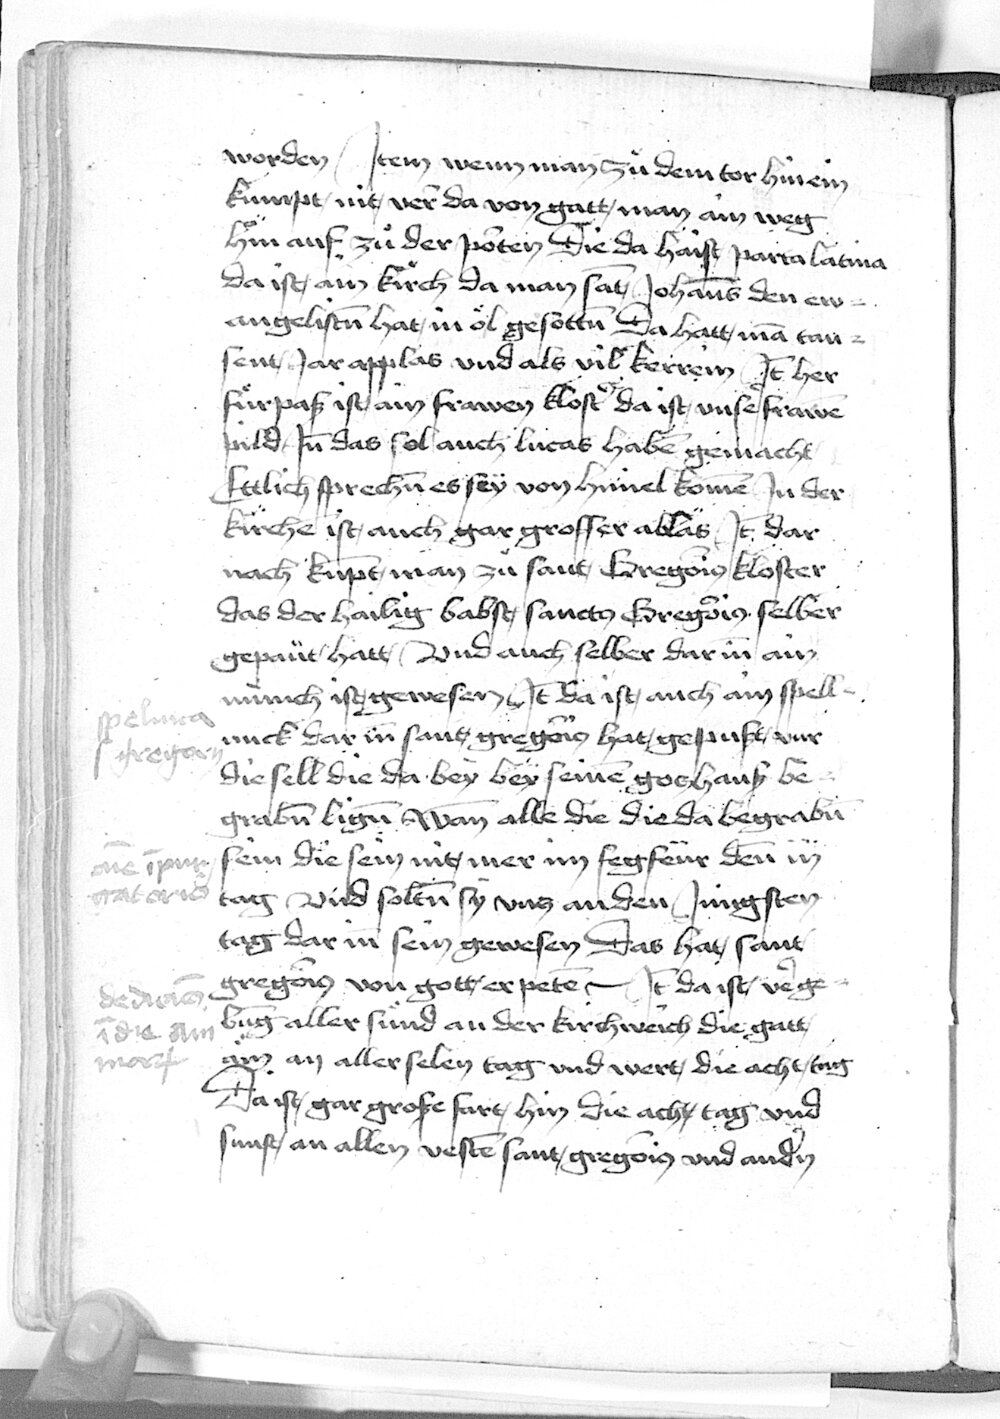 worden Item wenn man zů dem tor hin ein
kumpt nit verr da von gatt man ain weg
hin auf zů der porten Die da haist porta latina
da ist ain kirch da man sāt Johāns den ew-
angelistn̄ hat in öl gesottn̄ Da hatt mā tau-
sent Jar applas vnd als vil kerrein It̄ her
fürpaß ist ain frawen klost' da ist vnse' frawē
pild In̄ das sol auch lucas habē gemacht
Ettlich sprechn̄ es sey von himel komē In der
kirche ist auch gar grosser ablas It̄ dar
nach kūpt man zů sant Gregōius kloster
das der hailig babst sanctus Gregōius selber
gepaüt hatt Vnd auch selber dar in̄ ain
münch ist gewesen It̄ da ist auch ain spell-
unck dar in̄ sant gregōius hat gepüst vur
die sell die da bey bey seinē gotzhauß be-
grabn̄ lign̄ Wan̄ alle die die da begrabn̄
sein die sein nit mer im fegfeür den̄ iij
tag Vnd soltn̄ sy vntz an den Jüngsten
tag dar in̄ sein gewesen Das hat sant
gregōius von gott erpetē It̄ da ist v'ge-
būg aller sünd an der kirchweich die gatt
ain an aller selen tag vnd wert die acht tag
Da ist gar große fart hin die acht tag vnd
sunst an allen vestē sant gregōius vnd and'n
spelunca
S gregorij
ī pur
gatorio
ī die aīm